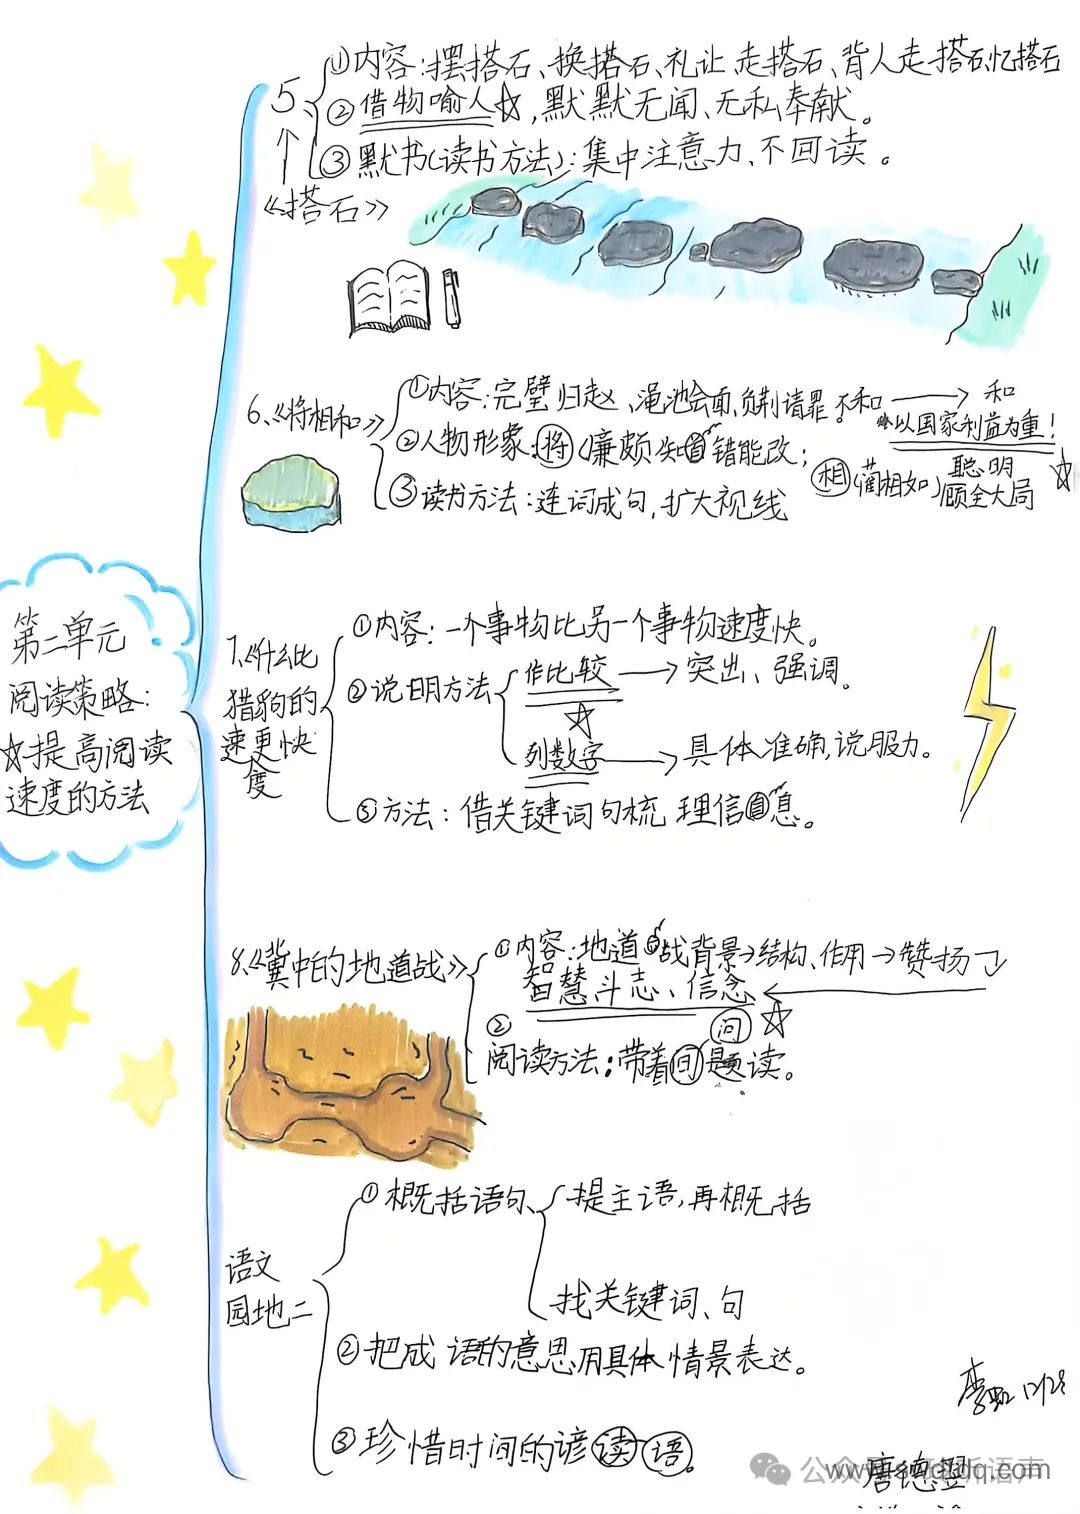 第二单元
阅读策略:
☆提高阅读
速度的方法
5、
《搭石》
①内容:摆搭石、换搭石、礼让走搭石、背人走搭石,忆搭石
②借物喻人☆,默默无闻、无私奉献。
③默书(读书方法):集中注意力、不回读。
6、《将相和》
①内容:完璧归赵、渑池会面、负荆请罪 不和→和
以国家利益为重!
②人物形象:将(廉颇)知错能改;
相(蔺相如)聪明
顾全大局☆
③读书方法:连词成句,扩大视线
7、《什么比
猎豹的
速更快
度
①内容:一个事物比另一个事物速度快。
②说明方法
作比较→突出、强调。
☆
列数字→具体准确,说服力。
③方法:借关键词句梳理信息。
8、《冀中的地道战》
①内容:地道战背景→结构、作用→赞扬
智慧斗志、信念
☆
②
问
阅读方法:带着问题读。
语文
园地二
①概括语句、
提主语,再概括
找关键词、句
②把成语的意思用具体情景表达。
③珍惜时间的谚读语。
12/28
唐德翌
公众号
听语声